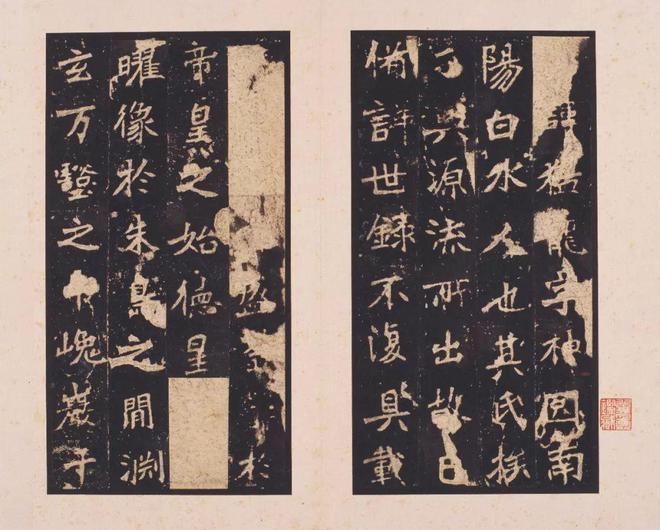 諱猛龍字神囧南
陽白水人也其氏族
興源流所出故已
俻詳世錄不復具載
盛於
帝皇之始德星
曜像於朱鳥之閒渊
玄万壑之中嵬巖千